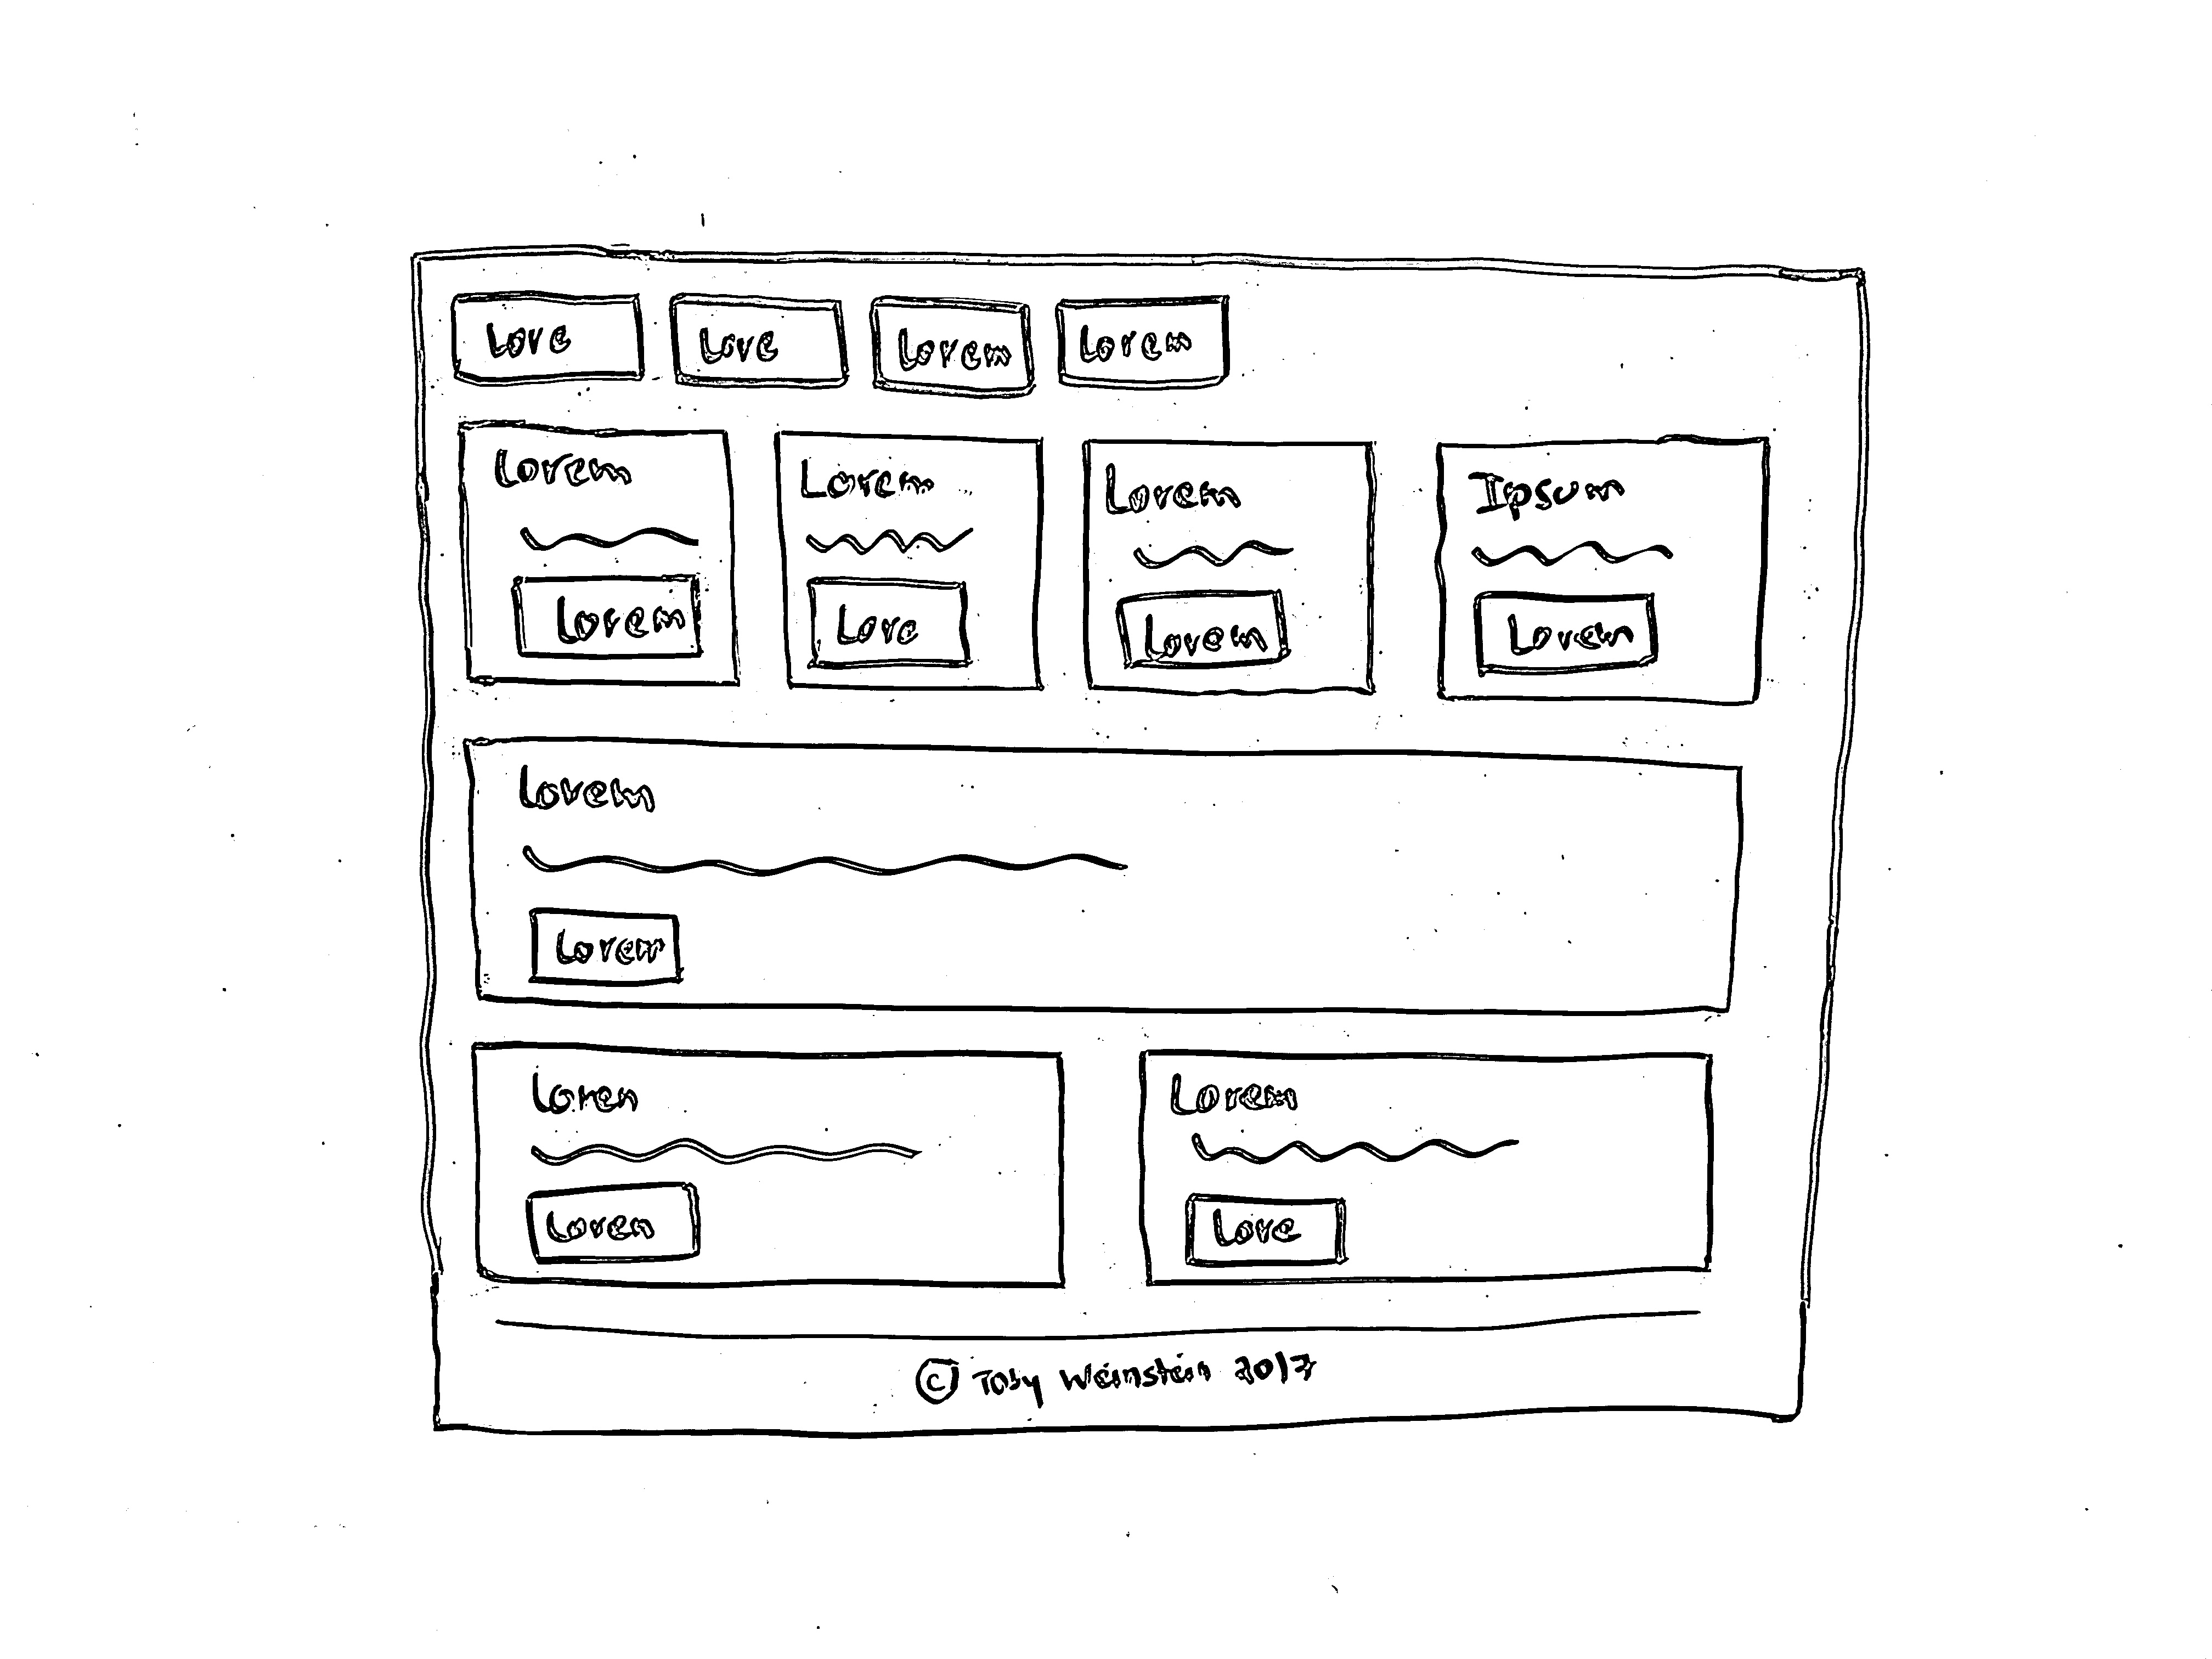 Love Love Lorem Lorem
Lorem Lorem Lorem Ipsum
Lorem Love Lorem Lorem
Lorem
Lorem
Loren Lorem
Loren Love
© Toby Weinstein 2017